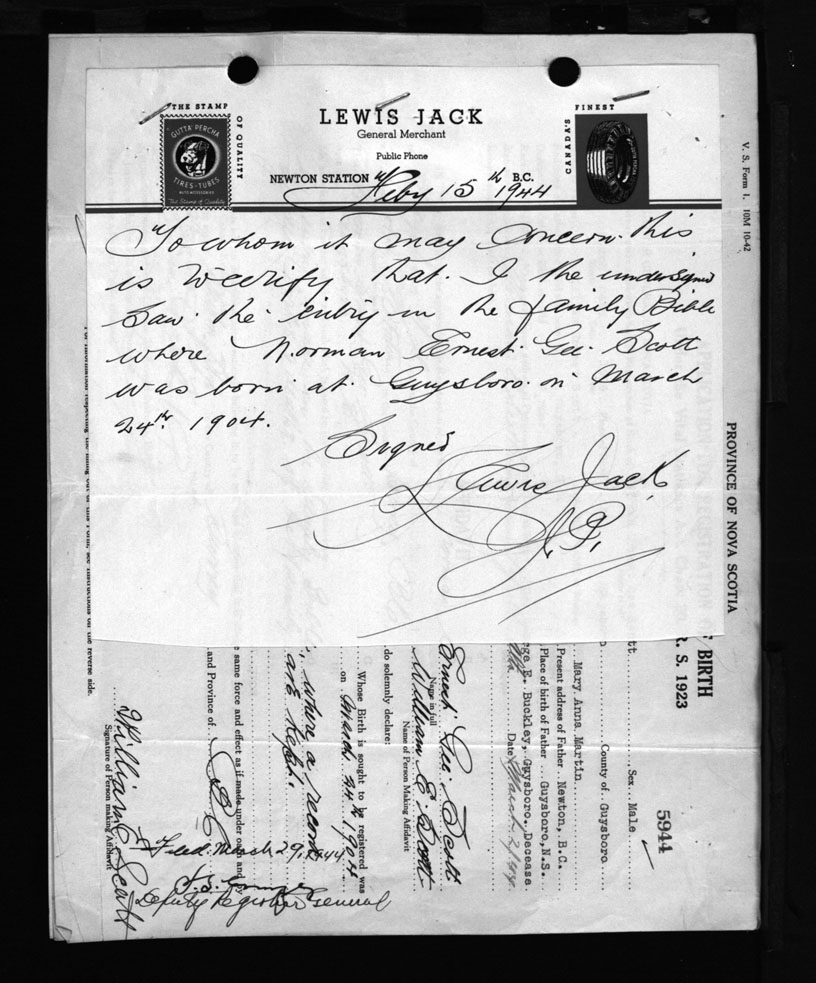 THE STAMP
OF QUALITY
GUTTA PERCHA
TIRES-TUBES
AUTO ACCESSORIES
The Stamp of Quality
LEWIS JACK
General Merchant
Public Phone
NEWTON STATION B.C.
Feby 15th 1944
CANADA'S
FINEST
To whom it may concern. this
is to certify that. I the undersigned
saw the entry in the family Bible
where Norman Ernest Geo. Scott
was born at Guysboro. on March
24th 1904.
Signed
Lewis Jack
J.P.
V. S. Form 1. 10M 10-42
PROVINCE OF NOVA SCOTIA
BIRTH
R. S. 1923
5944
Sex Male
County of Guysboro
Mary Anna Martin
Present address of Father Newton, B.C.
Place of birth of Father Guysboro, N.S.
E. Buckley, Guysboro, Decease
Date March 2/44
Ernest Geo Scott
Name in full
William E. Scott
Name of Person Making Affidavit
do solemnly declare:
Whose Birth is sought to be registered was
on March 24 1904
, where a record
are kept.
same force and effect as if made under oath and by
and Province of B C
Filed. March 29, 1944
Deputy Registrar General
William E Scott
Signature of Person making Affidavit
see instructions on the reverse side.